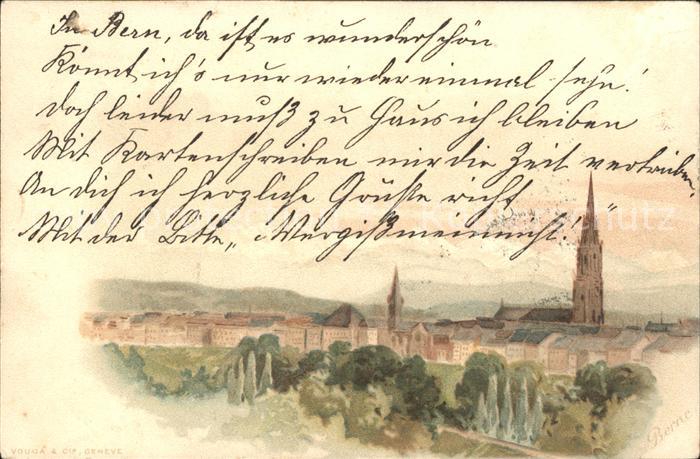 In Bern, da ist es wunderschön
Könnt ich's nur wieder einmal sehn!
Doch leider muß zu Haus ich bleiben
Mit Kartenschreiben mir die Zeit vertreiben,
An dich ich herzliche Grüße richt
Mit der Bitte „Vergißmeinnicht!"
Berne
VOUGA & Cie, GENÈVE